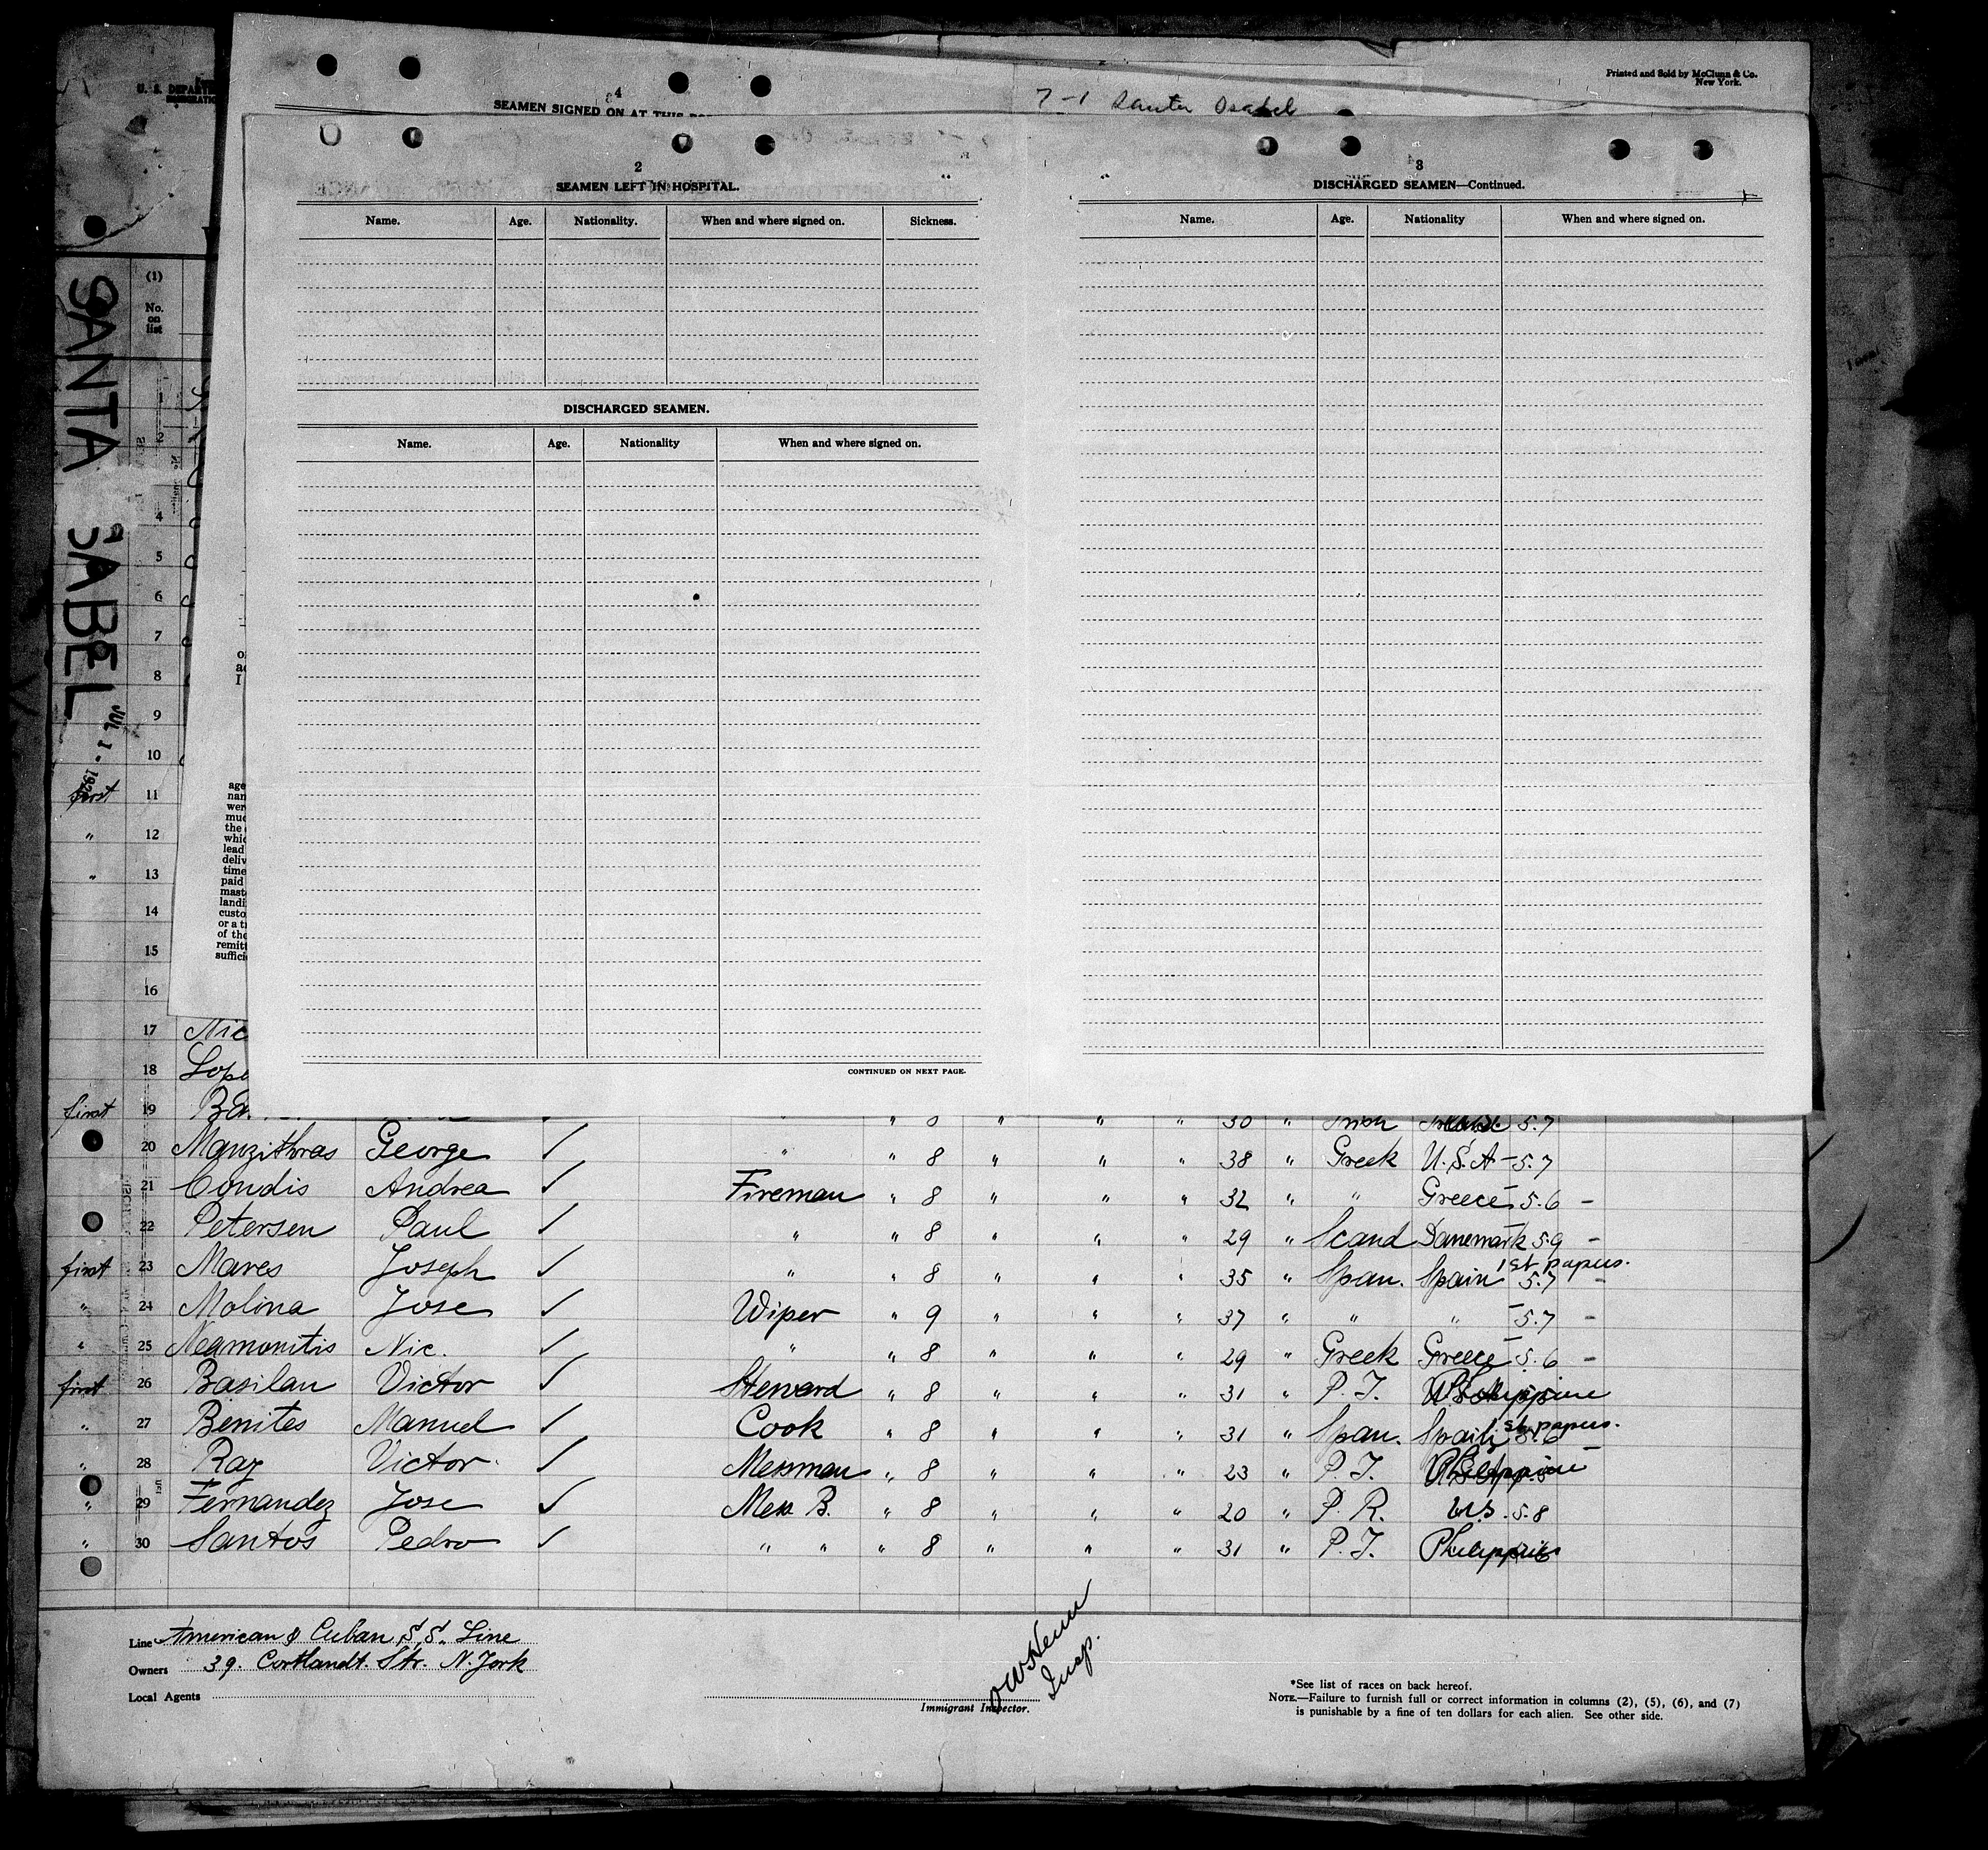 Printed and Sold by McClunn & Co.
New York.
U. S. DEPARTM
4
SEAMEN SIGNED ON AT THIS
7-1
2
SEAMEN LEFT IN HOSPITAL.
Name. Age. Nationality. When and where signed on. Sickness.
DISCHARGED SEAMEN.
Name. Age. Nationality When and where signed on.
CONTINUED ON NEXT PAGE.
3
DISCHARGED SEAMEN—Continued.
Name. Age. Nationality When and where signed on.
SANTA ISABEL
JUL 1 -
(1)
No.
on
list
1
2
4
5
6
7
8
9
10
first 11
" 12
" 13
14
15
16
age
nan
were
muc
the
whic
lead
deliv
time
paid
mast
landi
custo
or a tr
of the
remitt
suffici
17 Nic
18 Lope
first 19 Ba " 8 " " " 30 " Irish 5.7
20 Manzithras George ✓ " " 8 " " " 38 " Greek U.S.A – 5.7
21 Condis Andrea ✓ Fireman " 8 " " " 32 " " Greece – 5.6 –
22 Petersen Paul ✓ " " 8 " " " 29 " Scand Danemark 5.9 –
first 23 Mares Joseph ✓ " " 8 " " " 35 " Span. Spain 1st papers. 5.7 –
" 24 Molina Jose ✓ Wiper " 9 " " " 37 " " " – 5.7 –
" 25 Neamonitis Nic. ✓ " " 8 " " " 29 " Greek Greece – 5.6 –
first 26 Basilan Victor ✓ Steward " 8 " " " 31 " P. I. Philippine
" 27 Benites Manuel ✓ Cook " 8 " " " 31 " Span. Spain 1st papers. 5.6
" 28 Ray Victor ✓ Messman " 8 " " " 23 " P. I. Philippine –
" 29 Fernandez Jose ✓ Mess B. " 8 " " " 20 " P. R. U.S. 5.8
" 30 Santos Pedro ✓ " " " 8 " " " 31 " P. I.
Line American & Cuban S.S. Line
Owners 39. Cortlandt. Str. N. York
Local Agents
Insp.
Immigrant Inspector.
*See list of races on back hereof.
NOTE.—Failure to furnish full or correct information in columns (2), (5), (6), and (7)
is punishable by a fine of ten dollars for each alien. See other side.